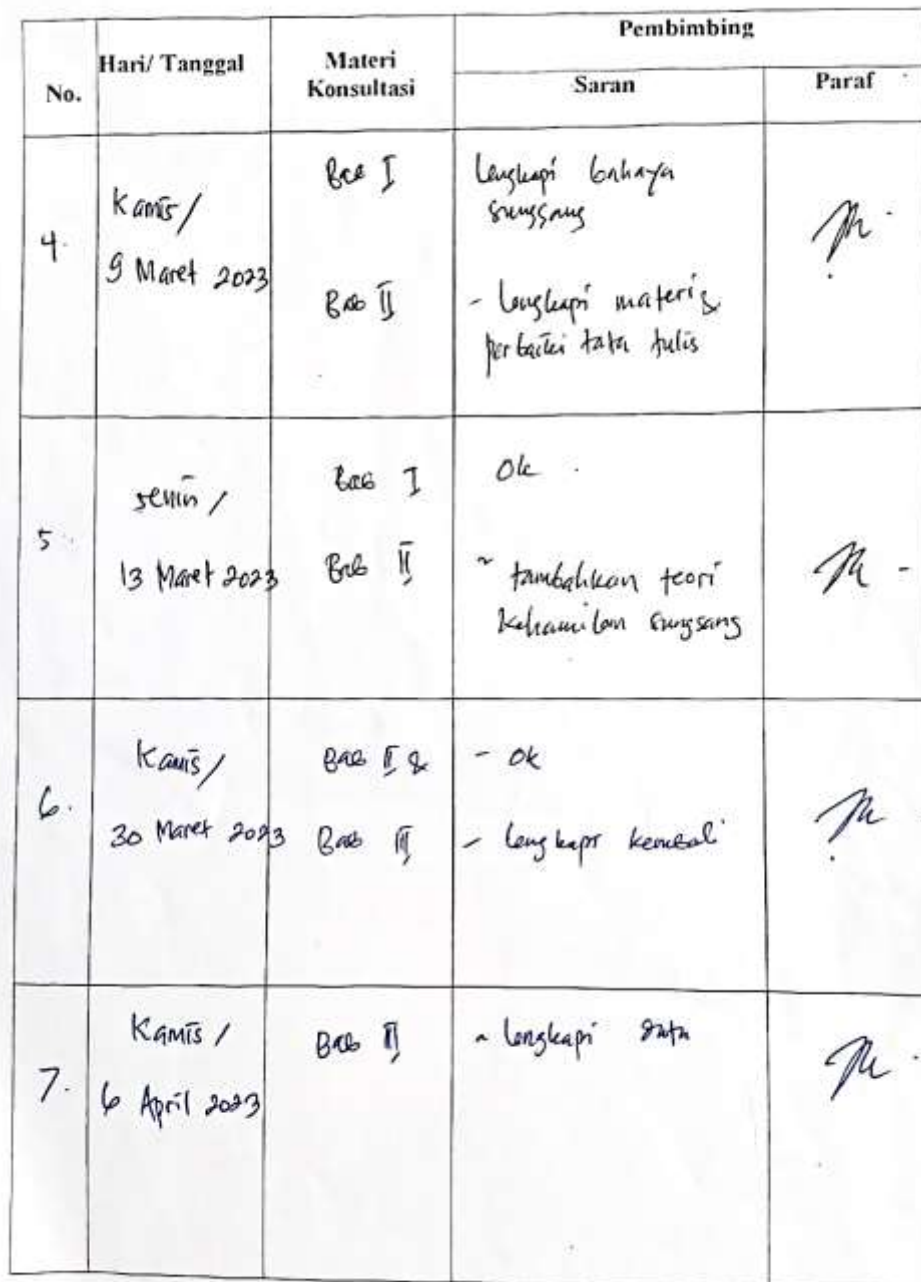 Pembimbing
Hari/ Tanggal
Materi
Konsultasi
No.
Saran
Paraf
4.
Kamis /
9 Maret 2023
Bab I
Lengkapi bahaya
sunggang
Bab II
- lengkapi materi &
perbaiki tata tulis
5
senin /
13 Maret 2023
Bab I
Ok
Bab II
~ tambahkan teori
kehamilan sungsang
6.
Kamis /
30 Maret 2023
Bab II &
- Ok
Bab III
- lengkapi kembali
7.
Kamis /
6 April 2023
Bab
~ lengkapi data